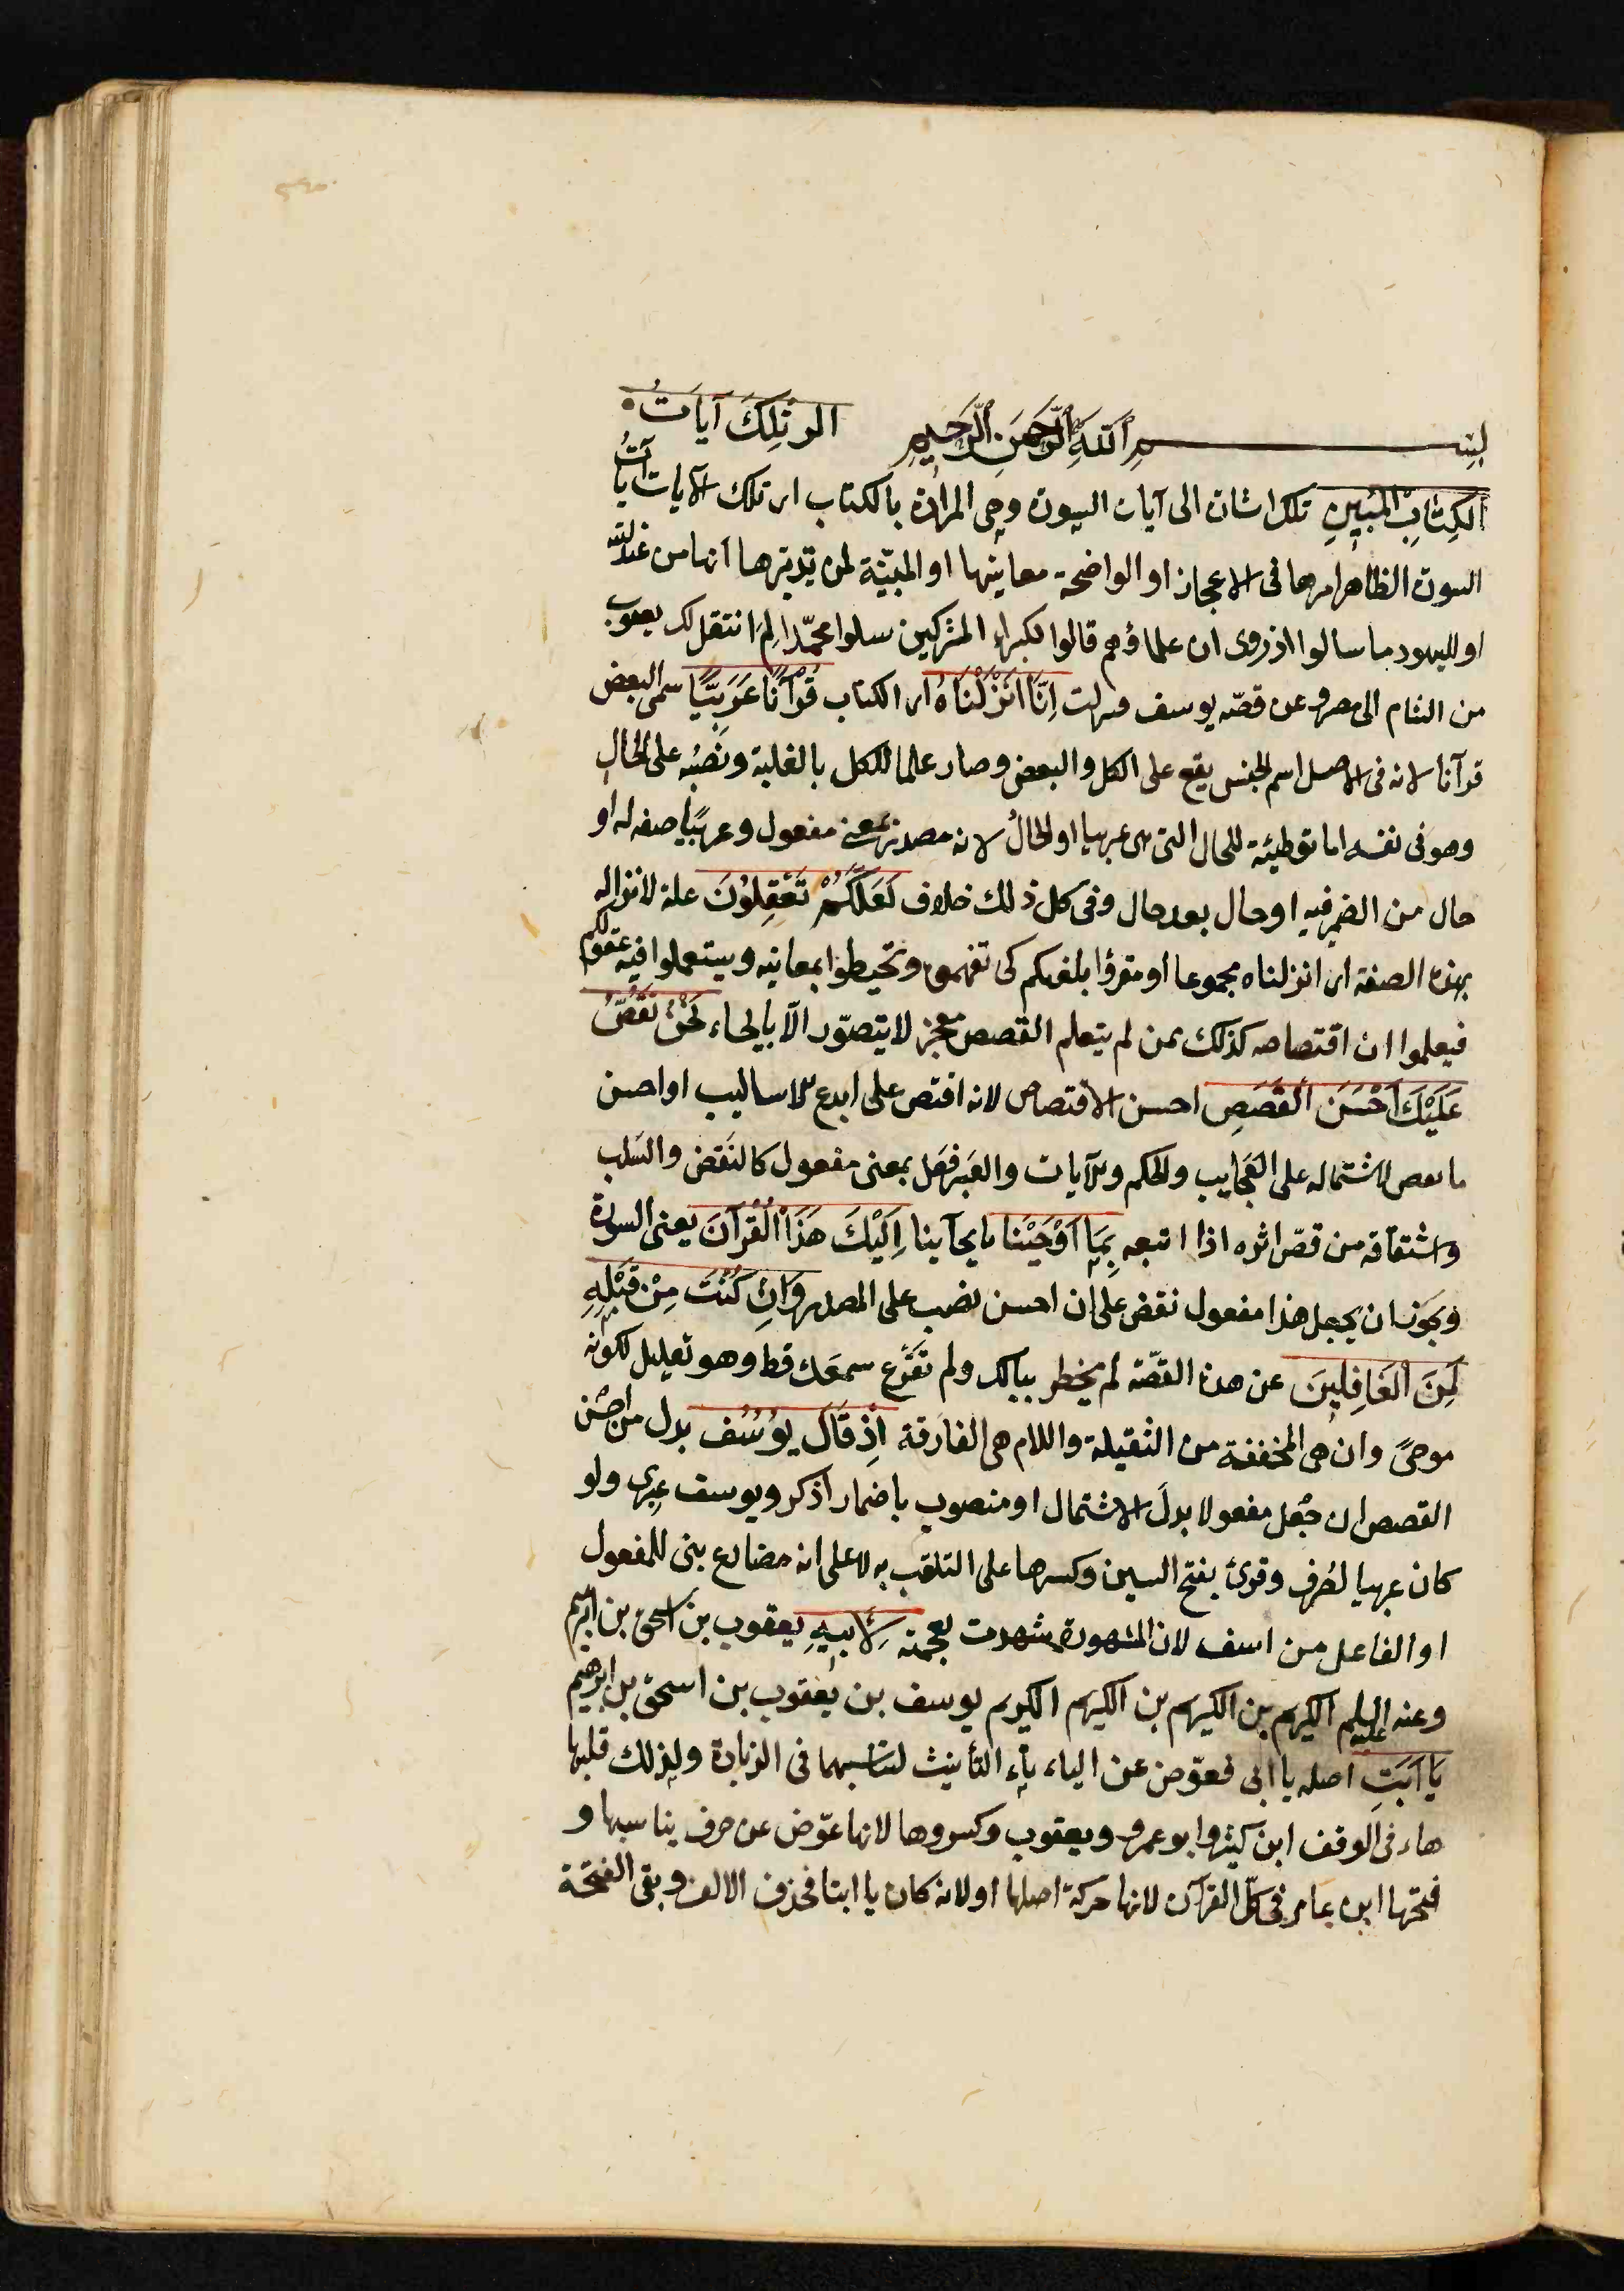 بِسْمِ اللّٰهِ الرَّحْمَنِ الرَّحِيمِ الر تِلْكَ آيَاتُ
الْكِتَابِ الْمُبِينِ تلك اشارة الى آيات السورة وهى المرادة بالكتاب اى تلك الآيات آيات
السورة الظاهر امرها فى الاعجاز او الواضحة معانيها او المبيّنة لمن تدبّرها انها من عند الله
او لليهود ما سالوا اذ روى ان علماؤهم قالوا لكبراء المشركين سلوا محمّدا لم انتقل آل يعقوب
من الشام الى مصر وعن قصّه يوسف فنزلت اِنَّا اَنْزَلْنَاهُ اى الكتاب قُرْآنًا عَرَبِيًّا سمى البعض
قرآنا لانه فى الاصل اسم الجنس يقع على الكل والبعض وصار علما للكل بالغلبة ونَصْبُه على الحال
وهو فى نفسه اما توطئة للحال التى هى عربيا او الحالُ لانه مصدر بمعنى مفعول وعربيًّا صفه له او
حال من الضمير فيه او حال بعد حال وفى كل ذلك خلاف لَعَلَّكُمْ تَعْقِلُونَ علة لانزاله
بهذه الصفة اى انزلناه مجموعا او مقرؤا بلغتكم كى تفهموه وتحيطوا بمعانيه ويستعملوا فيه عقولكم
فيعلموا ان اقتصاصه كذلك ممن لم يتعلم القصص معجز لا يتصوّر الّا بايحاء نَحْنُ نَقُصُّ
عَلَيْكَ اَحْسَنَ الْقَصَصِ احسن الاقتصاص لانه اقتص على ابدع الاساليب او احسن
ما يقص لاشتماله على العَجَايب والحكم والآيات والعِبَر فعَل بمعنى مفعول كالنَقَض والسَلب
واشتقاقه من قصّ اثره اذا اتبعه بِمَا اَوْحَيْنَا بايحآئنا اِلَيْكَ هَذَا الْقُرْآنَ يعنى السورة
ويجوز ان يجعل هذا مفعول نقص على ان احسن نصب على المصدر وَاِنْ كُنْتَ مِنْ قَبْلِهِ
لَمِنَ الْغَافِلِينَ عن هذه القصّة لم يخطر ببالك ولم تقرَع سمعَك قط وهو تعليل لكونه
موحىً وان هى المخففة من الثقيلة واللام هى الفارقة اِذْ قَالَ يُوسُفُ بدل من احسن
القصص ان جُعل مفعولا بدلَ الاشتمال او منصوب باضمار اذكر ويوسف عبرى ولو
كان عربيا لصُرف وقرئ بفتح السين وكسرها على التلعّب به لا على انه مضارع بنى للمفعول
او الفاعل من اسف لان المشهورة شهدت بعجمته لِاَبِيهِ يعقوب بن اسحق بن ابرهيم
وعنه عليه السلم الكريم بن الكريم بن الكريم الكريم يوسف بن يعقوب بن اسحق بن ابرهيم
يَا اَبَتِ اصله يا ابى فعوّض عن الياء تاء التأنيث لتناسبهما فى الزيادة ولذلك قلبها
هاء فى الوقف ابن كثير وابو عمرو ويعقوب وكسروها لانها عوّض عن حرف يناسبها و
فتحها ابن عامر فى كلّ القرآن لانها حركة اصلها او لانه كان يا ابتا فحذف الالف وبقى الفتحة